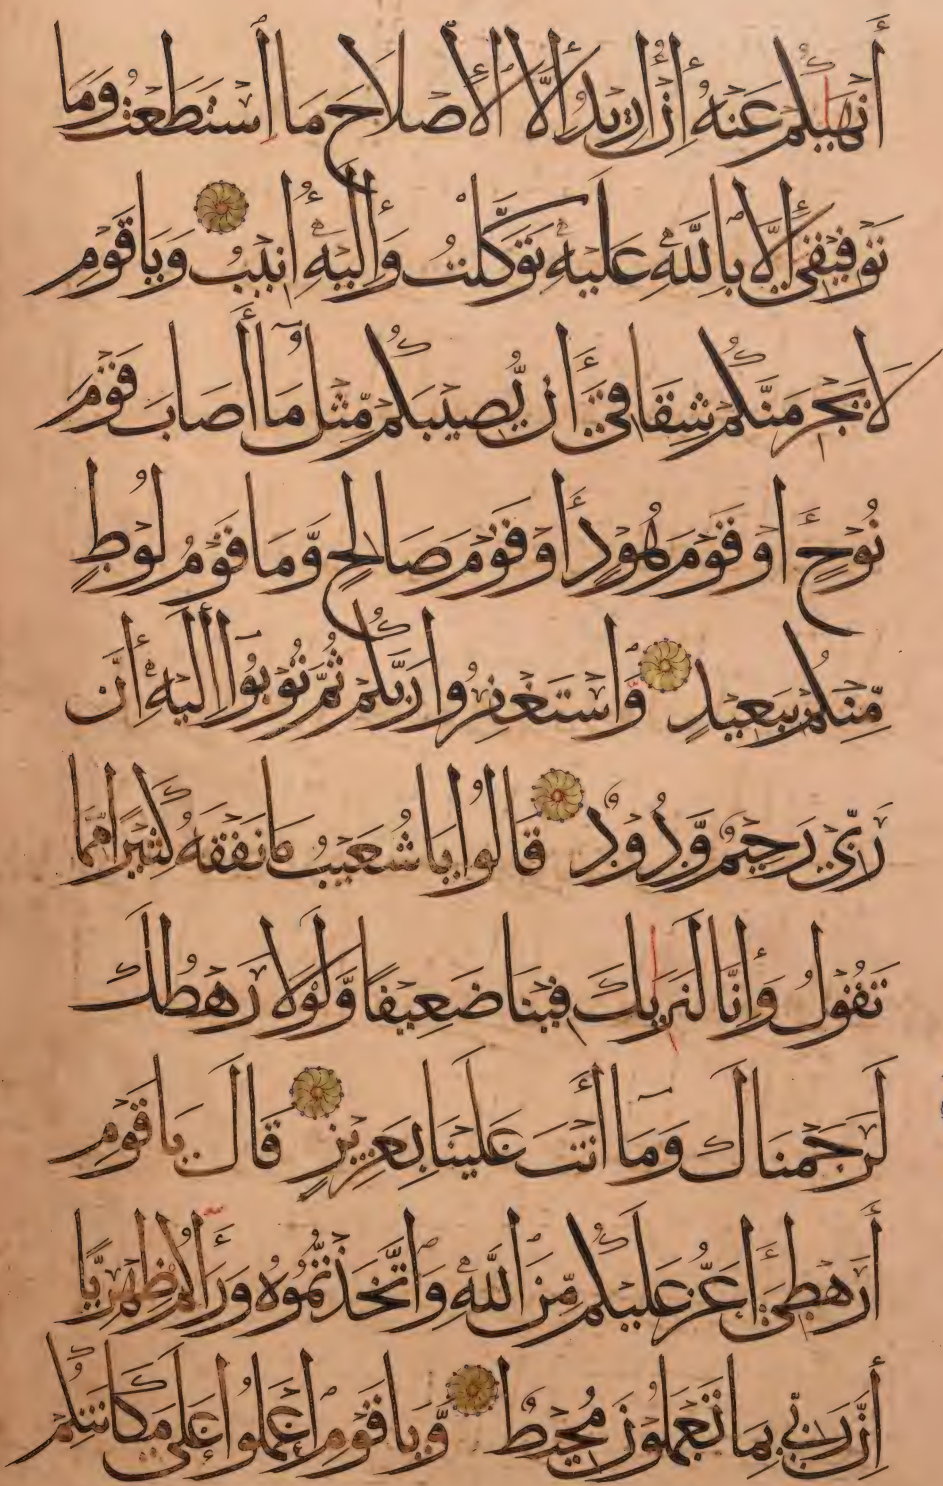 أَنْهَيكُمْ عَنْهُ إِنْ أُرِيدُ إِلَّا الْإِصْلَاحَ مَا اسْتَطَعْتُ وَمَا
تَوْفِيقِي إِلَّا بِاللَّهِ عَلَيْهِ تَوَكَّلْتُ وَإِلَيْهِ أُنِيبُ وَيَا قَوْمِ
لَا يَجْرِمَنَّكُمْ شِقَاقِي أَنْ يُّصِيبَكُمْ مِّثْلُ مَا أَصَابَ قَوْمَ
نُوحٍ أَوْ قَوْمَ هُودٍ أَوْ قَوْمَ صَالِحٍ وَّمَا قَوْمُ لُوطٍ
مِّنْكُمْ بِبَعِيدٍ وَاسْتَغْفِرُوا رَبَّكُمْ ثُمَّ تُوبُوا إِلَيْهِ إِنَّ
رَبِّي رَحِيمٌ وَّدُودٌ قَالُوا يَا شُعَيْبُ مَا نَفْقَهُ كَثِيرًا مِّمَّا
تَقُولُ وَإِنَّا لَنَرَيكَ فِينَا ضَعِيفًا وَّلَوْلَا رَهْطُكَ
لَرَجَمْنَاكَ وَمَا أَنْتَ عَلَيْنَا بِعَزِيزٍ قَالَ يَا قَوْمِ
أَرَهْطِي أَعَزُّ عَلَيْكُمْ مِّنَ اللَّهِ وَاتَّخَذْتُمُوهُ وَرَاءَكُمْ ظِهْرِيًّا
إِنَّ رَبِّي بِمَا تَعْمَلُونَ مُحِيطٌ وَّيَا قَوْمِ اعْمَلُوا عَلَى مَكَانَتِكُمْ